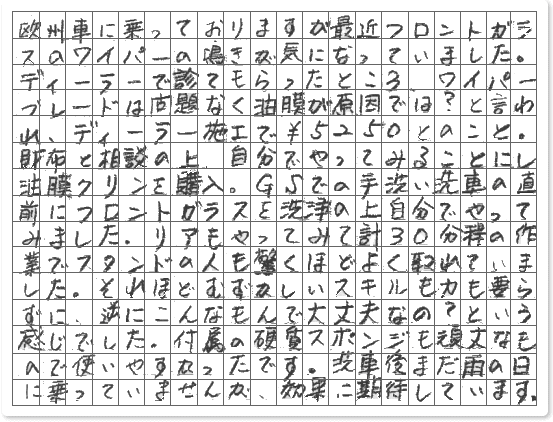 欧州車に乗っておりますが最近フロントガラ
スのワイパーの鳴きが気になっていました。
ディーラーで診てもらったところ、ワイパー
ブレードは問題なく油膜が原因では?と言わ
れ、ディーラー施工で¥5250とのこと。
財布と相談の上、自分でやってみることにし
油膜クリンを購入。GSでの手洗い洗車の直
前にフロントガラスを洗浄の上自分でやって
みました。リアもやってみて計30分程の作
業でスタンドの人も驚くほどよく取れていま
した。それほどむずかしいスキルも力も要ら
ずに、逆にこんなもんで大丈夫なの?という
感じでした。付属の硬質スポンジも頑丈なも
ので使いやすかったです。洗車後まだ雨の日
に乗っていませんが、効果に期待しています。